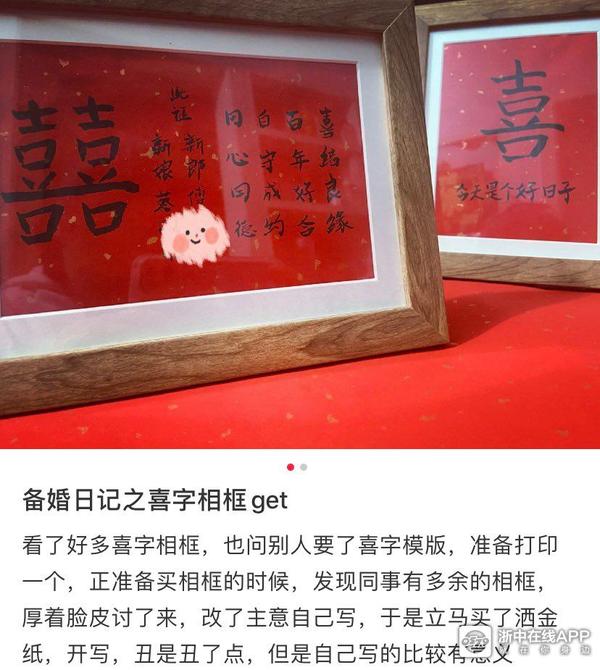 喜结良缘
百年好合
白守成约
同心同德
此证
新郎
新娘
囍
喜
今天是个好日子
备婚日记之喜字相框get
看了好多喜字相框，也问别人要了喜字模版，准备打印
一个，正准备买相框的时候，发现同事有多余的相框，
厚着脸皮讨了来，改了主意自己写，于是立马买了洒金
纸，开写，丑是丑了点，但是自己写的比较有意义
浙中在线APP
在你身边